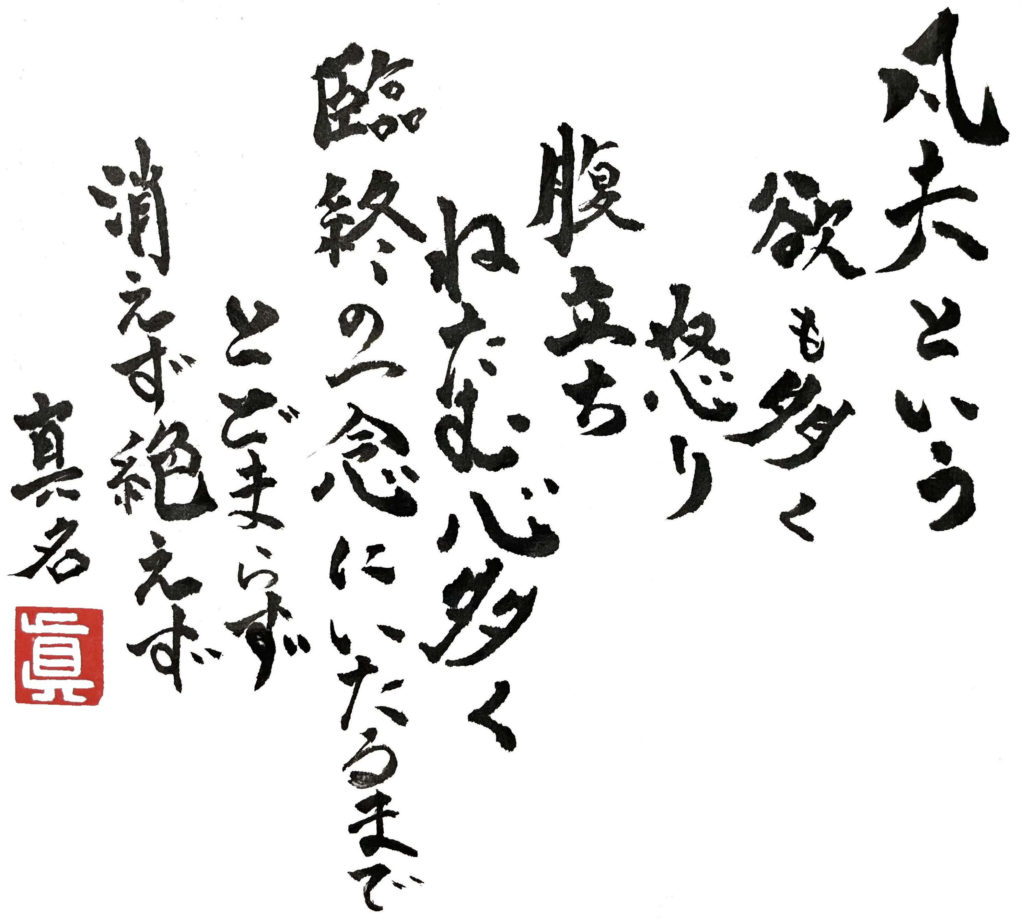 凡夫という
欲も多く
怒り
腹立ち
ねたむ心多く
臨終の一念にいたるまで
とどまらず
消えず絶えず
真名
眞